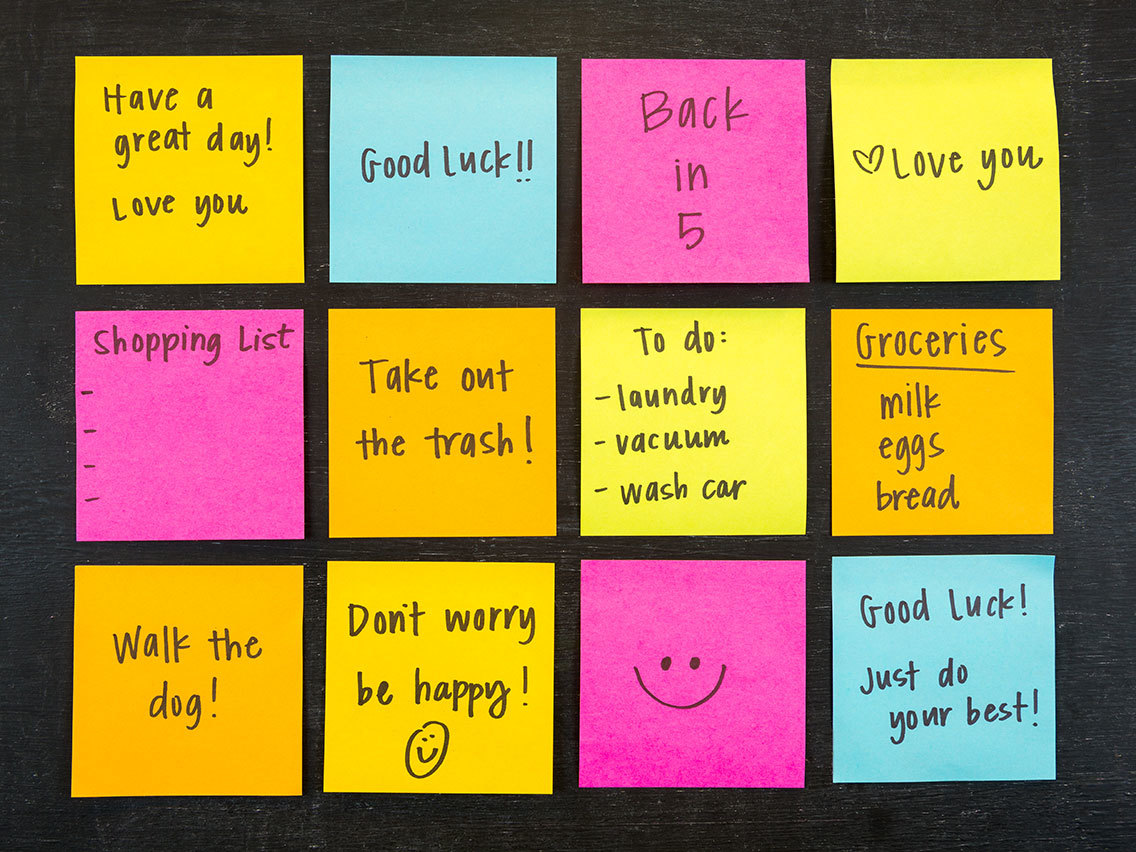 Have a
great day!
Love you
Good Luck!!
Back
in
5
♡ Love you
Shopping List
-
-
-
-
Take out
the trash!
To do:
- laundry
- vacuum
- wash car
Groceries
milk
eggs
bread
Walk the
dog!
Don't worry
be happy!
Good Luck!
Just do
your best!